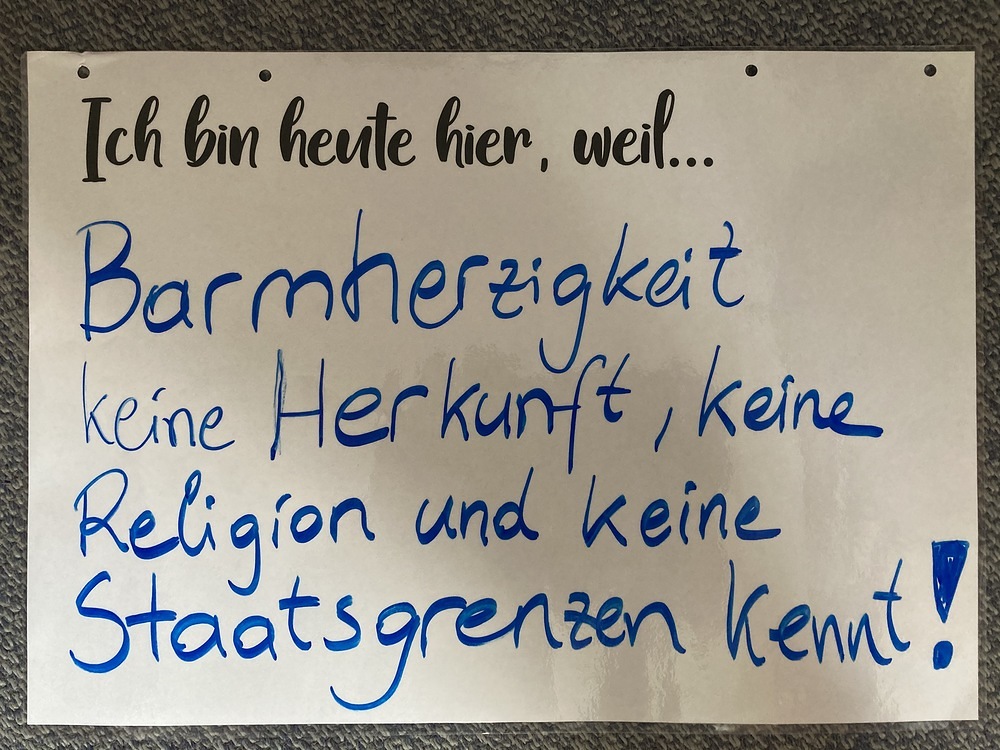 Ich bin heute hier, weil...
Barmherzigkeit
keine Herkunft, keine
Religion und keine
Staatsgrenzen kennt!